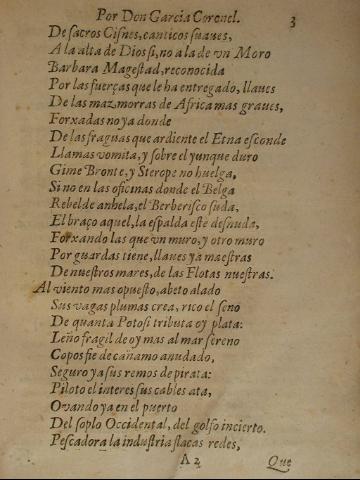 Por Don Garcia Coronel. 3
De sacros Cisnes, canticos suaues,
A la alta de Dios si, no a la de vn Moro
Barbara Magestad, reconocida
Por las fuerças que le ha entregado, llaues
De las maz,morras de Africa mas graues,
Forxadas no ya donde
De las fraguas que ardiente el Etna esconde
Llamas vomita, y sobre el yunque duro
Gime Bronte, y Sterope no huelga,
Si no en las oficinas donde el Belga
Rebelde anhela, el Berberisco suda,
El braço aquel, la espalda este desnuda,
Forxando las que vn muro, y otro muro
Por guardas tiene, llaues ya maestras
De nuestros mares, de las Flotas nuestras.
Al viento mas opuesto, abeto alado
Sus vagas plumas crea, rico el seno
De quanta Potosi tributa oy plata:
Leño fragil de oy mas al mar sereno
Copos fie de cañamo anudado,
Seguro ya sus remos de pirata:
Piloto el interes sus cables ata,
Ouando ya en el puerto
Del soplo Occidental, del golfo incierto.
Pescadora la industria flacas redes,
A2 Que